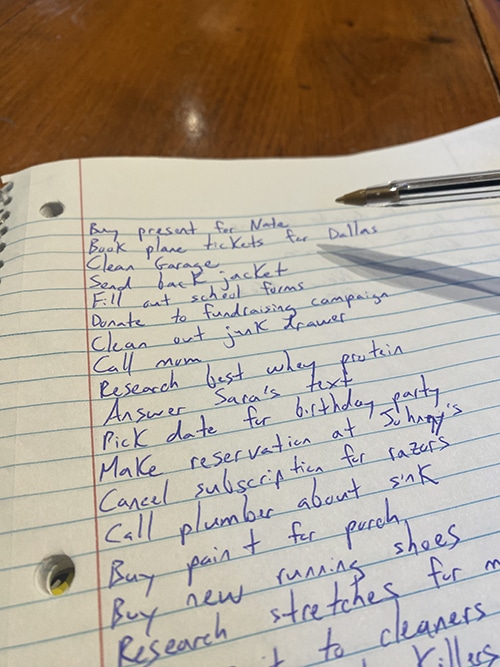 Buy present for Nate
Book plane tickets for Dallas
Clean Garage
Send back jacket
Fill out school forms
Donate to fundraising campaign
Clean out junk drawer
Call mom
Research best whey protein
Answer Sara's text
Pick date for birthday party
Make reservation at Johnny's
Cancel subscription for razors
Call plumber about sink
Buy paint for porch
Buy new running shoes
Research stretches for
to cleaners
killers